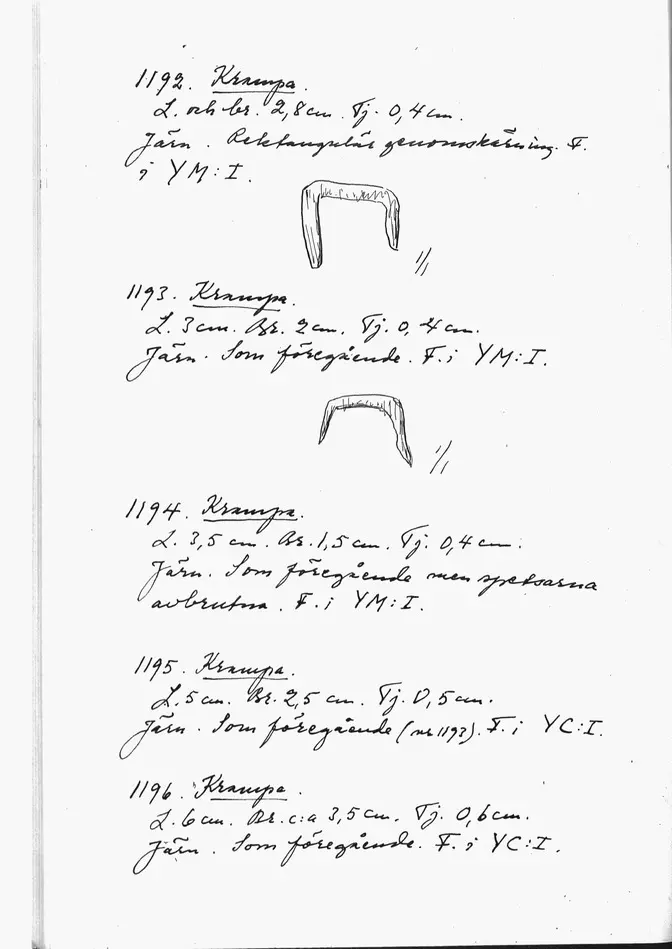 1192. Krampa.
L. och br. 2,8 cm. Tj. 0,4 cm.
Järn. Rektangulär genomskärning. F.
i YM:I.
1/1
1193. Krampa.
L. 3 cm. Br. 2 cm. Tj. 0,4 cm.
Järn. Som föregående. F. i YM:I.
1/1
1194. Krampa.
L. 3,5 cm. Br. 1,5 cm. Tj. 0,4 cm.
Järn. Som föregående men spetsarna
avbrutna. F. i YM:I.
1195. Krampa.
L. 5 cm. Br. 2,5 cm. Tj. 0,5 cm.
Järn. Som föregående (nr 1193). F. i YC:I.
1196. Krampa.
L. 6 cm. Br. c:a 3,5 cm. Tj. 0,6 cm.
Järn. Som föregående. F. i YC:I.